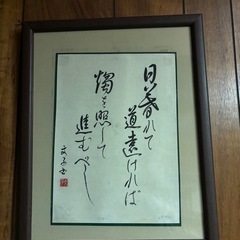 日暮れて
道遠ければ
燭を照して
進むべし